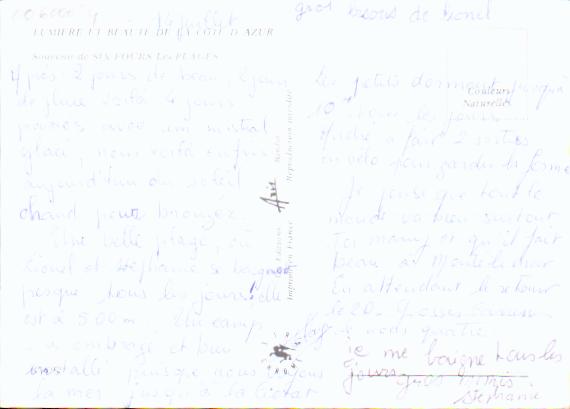 14 juillet
gros bisous de Lionel
LUMIERE ET BEAUTE DE LA COTE D'AZUR
Souvenir de SIX FOURS Les PLAGES
Après 2 jours de beau, 2 jours
de pluie voilà 4 jours
pourris avec un mistral
glacé, nous voilà enfin
aujourd'hui au soleil
chaud pour bronzer.
Une belle plage, où
Lionel et Stéphanie se baignent
presque tous les jours elle
est à 500 m. Un camp
ombragé et bien
installé puisque nous
la mer jusqu'à la Ciotat
Editions Aris
Reproduction interdite
Imprimé en France
Couleurs
Naturelles
Les petits dorment jusqu'à
10 heures les jours
André a fait 2 sorties
en vélo pour garder la forme
Je pense que tout le
monde va bien surtout
toi mamy et qu'il fait
beau à Montelimar
En attendant le retour
le 20. Grosses bises
de nous quatre
je me baigne tous les
jours gros bisous
Stéphanie